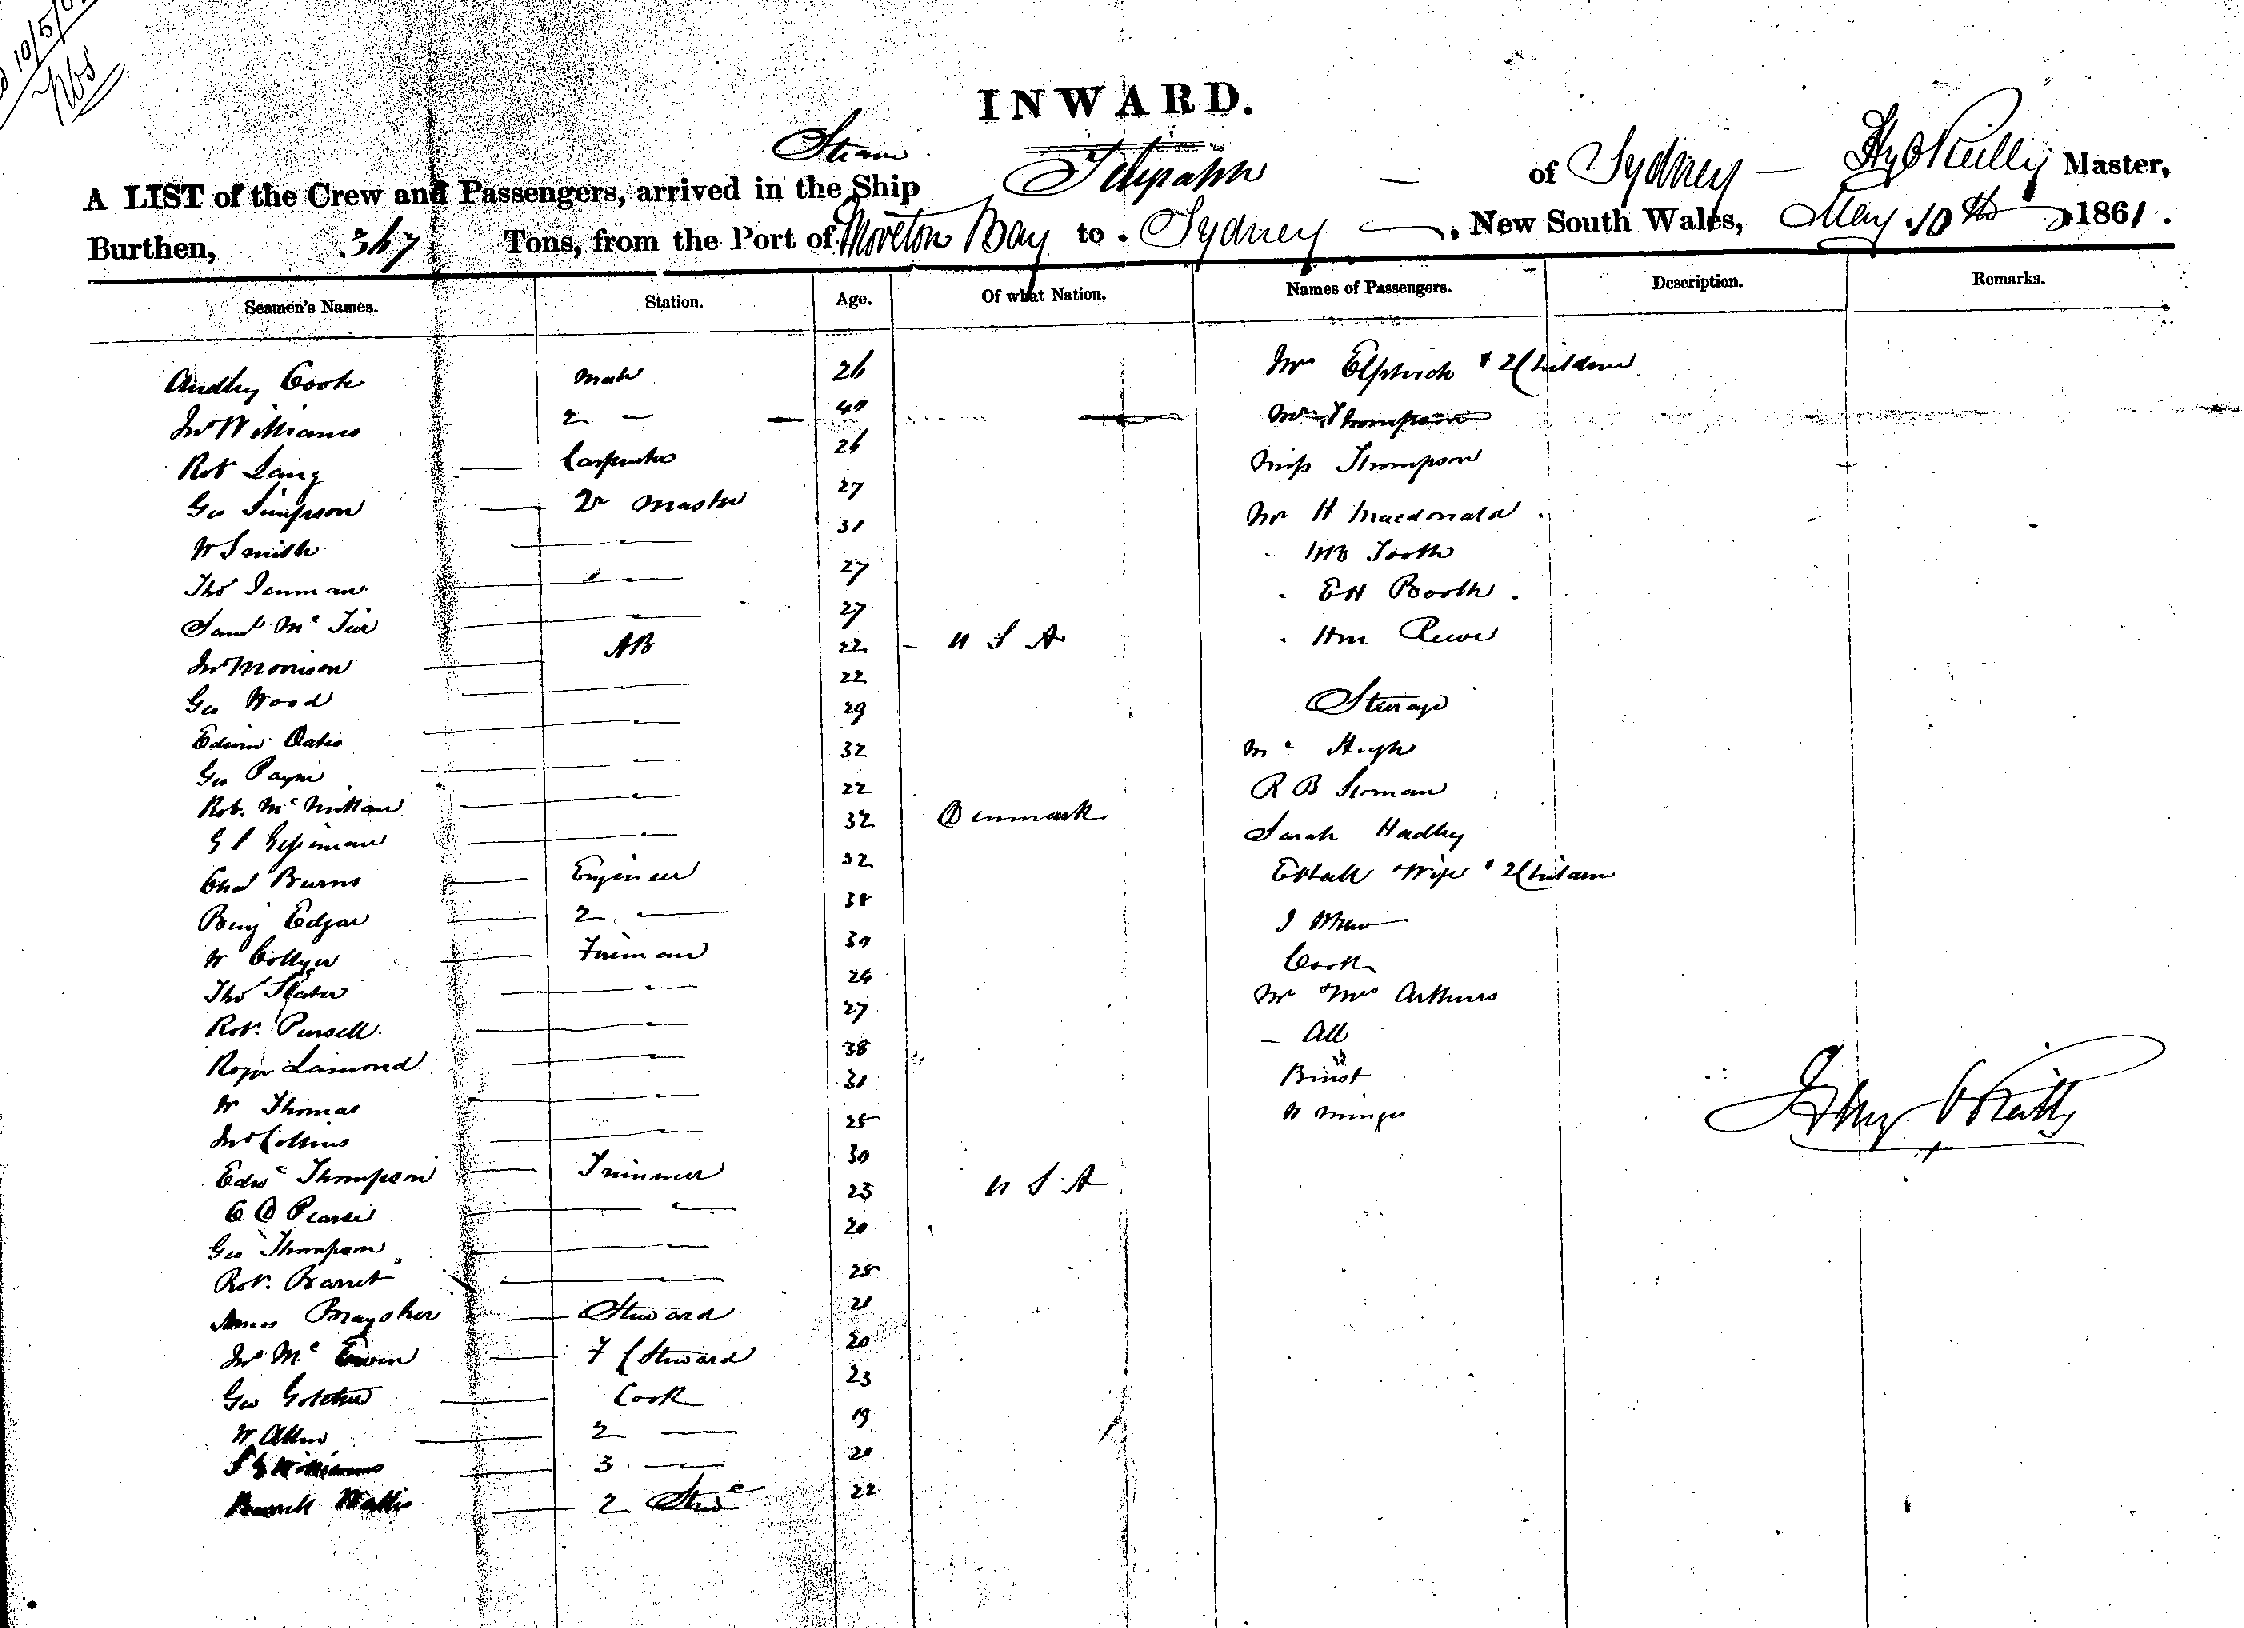 10/5/61
INWARD.
Steam
A LIST of the Crew and Passengers, arrived in the Ship Telegraph — of Sydney — Hy O'Reilly Master,
Burthen, 367 Tons, from the Port of Moreton Bay to Sydney —, New South Wales, May 10th 1861.
Seamen's Names. Station. Age. Of what Nation. Names of Passengers. Description. Remarks.
Audley Coote Mate 26 Mrs & 2 Children
Jno Williams 2 — 40 Mr Thompson
Robt Lang Carpenter 26 Miss Thompson
Geo Simpson Qr Master 27 Mr H Macdonald
W Smith — 31 Tooth
Thos Denman — 27 E H Booth
Saml Mc — 27
Jno Morrison AB 22 U S A
Geo Wood — 22 Steerage
Edwin Oates — 29 Mc Hugh
Geo Payne — 32 R B Sloman
Robt Mc — 22 Sarah Hadley
G — 32 Denmark Wife & 2 Children
Chas Burns Engineer 32
Benj Edgar 2 — 38 Cook
W Collyer Fireman 30 Mr & Mrs Arthurs
Thos Slater — 26 — All
Robt Pursell — 27
Roger Lamond — 38
W Thomas — 31
Jno Collins — 25
Edwd Thompson Trimmer 30
C D Pearse — 23 U S A
Geo Thompson — 20
Robt Barret — 25
Braysher Steward 21
Jno Mc Ewen F C Steward 20
Geo Cook 23
W Allen 2 — 19
Williams 3 — 20
Wallis 2 Stewd 22
Hy O'Reilly